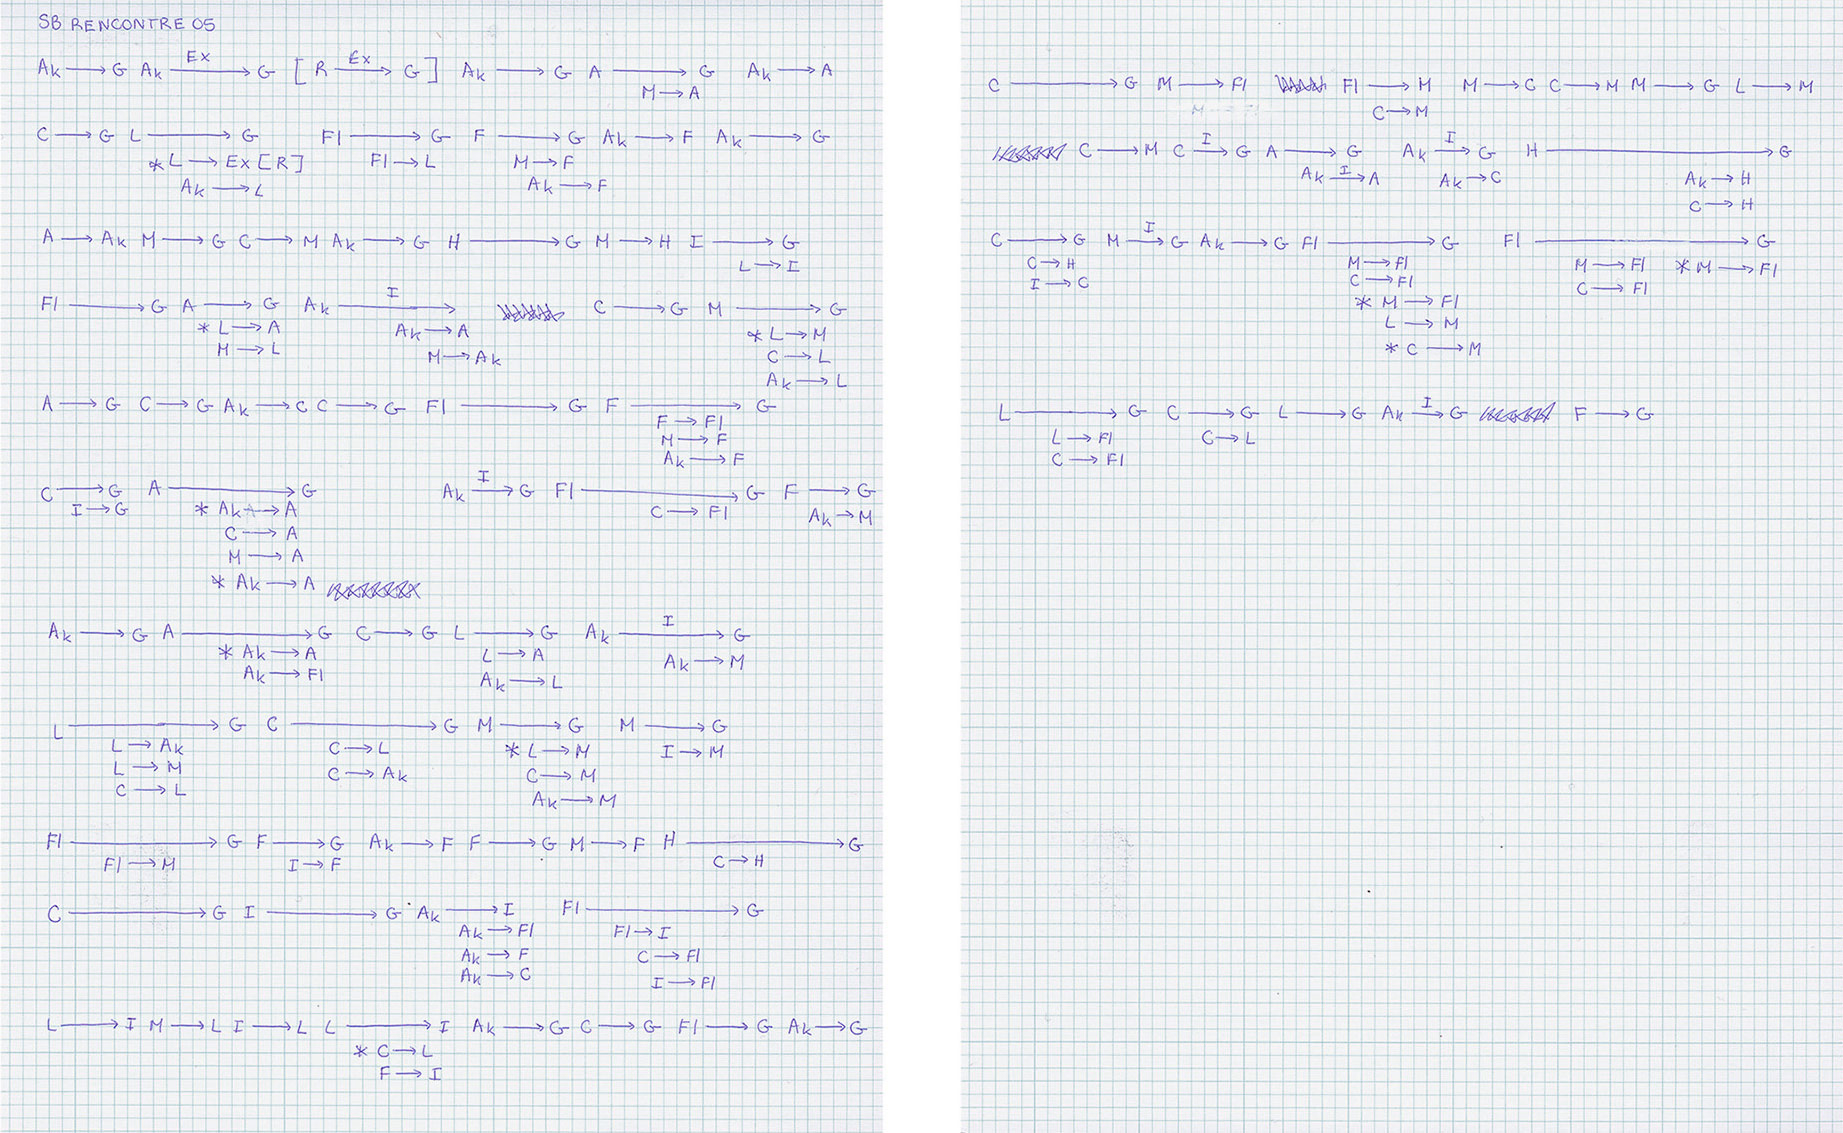 SB RENCONTRE 05
Ex Ex
Ak → G Ak → G [ R → G ] Ak → G A → G Ak → A
M → A
C → G L → G Fl → G F → G Ak → F Ak → G
* L → Ex [R] Fl → L M → F
Ak → L Ak → F
A → Ak M → G C → M Ak → G H → G M → H I → G
L → I
I
Fl → G A → G Ak → C → G M → G
* L → A Ak → A * L → M
M → L M → Ak C → L
Ak → L
A → G C → G Ak → C C → G Fl → G F → G
F → Fl
M → F
Ak → F
I
C → G A → G Ak → G Fl → G F → G
I → G * Ak → A C → Fl Ak → M
C → A
M → A
* Ak → A
I
Ak → G A → G C → G L → G Ak → G
* Ak → A L → A Ak → M
Ak → Fl Ak → L
L → G C → G M → G M → G
L → Ak C → L * L → M I → M
L → M C → Ak C → M
C → L Ak → M
Fl → G F → G Ak → F F → G M → F H → G
Fl → M I → F C → H
C → G I → G Ak → I Fl → G
Ak → Fl Fl → I
Ak → F C → Fl
Ak → C I → Fl
L → I M → L I → L L → I Ak → G C → G Fl → G Ak → G
* C → L
F → I
C → G M → Fl Fl → M M → C C → M M → G L → M
C → M
I I
C → M C → G A → G Ak → G H → G
I
Ak → A Ak → C Ak → H
C → H
I
C → G M → G Ak → G Fl → G Fl → G
C → H M → Fl M → Fl * M → Fl
I → C C → Fl C → Fl
* M → Fl
L → M
* C → M
I
L → G C → G L → G Ak → G F → G
L → Fl C → L
C → Fl